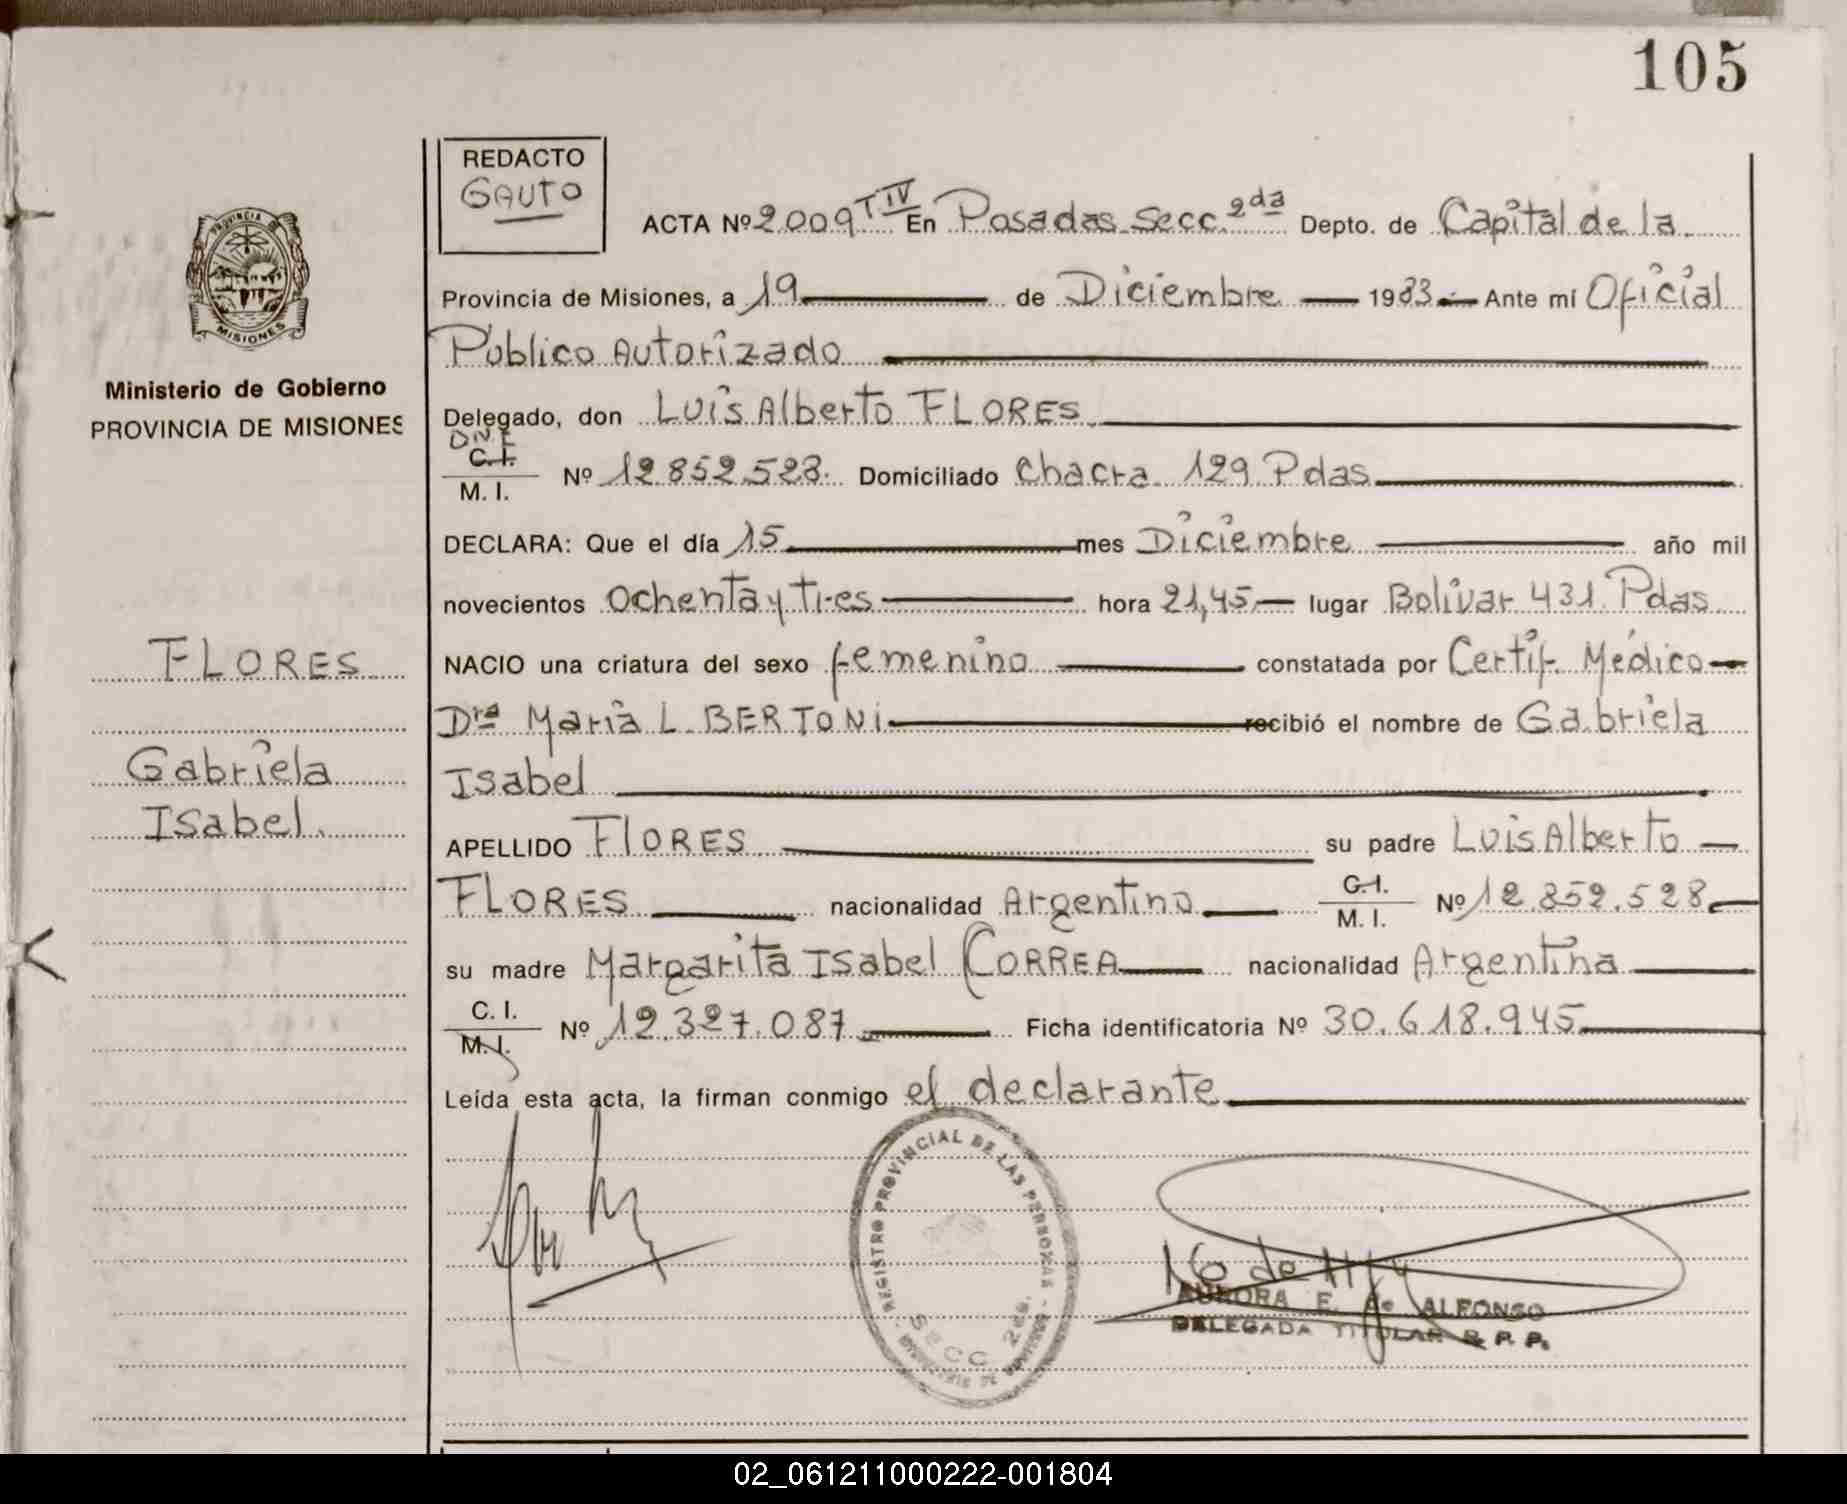 105
REDACTO
GAUTO
ACTA Nº 2009 T IV En Posadas Secc. 2da Depto. de Capital de la
Provincia de Misiones, a 19 de Diciembre 1983 Ante mí Oficial
Público Autorizado
Ministerio de Gobierno
PROVINCIA DE MISIONES
Delegado, don Luis Alberto FLORES
DNI
C.I.
M. I. Nº 12.852.528. Domiciliado Chacra 129 Pdas
DECLARA: Que el día 15 mes Diciembre año mil
novecientos Ochenta y tres hora 21,45 lugar Bolivar 431 Pdas
FLORES
NACIO una criatura del sexo femenino constatada por Certif. Médico
Dra Maria L. BERTONI recibió el nombre de Gabriela
Gabriela
Isabel
Isabel.
APELLIDO FlORES su padre Luis Alberto
FLORES nacionalidad Argentino C.I. M. I. Nº 12.852.528
su madre Margarita Isabel CORREA nacionalidad Argentina
C. I. M. I. Nº 12.327.087 Ficha identificatoria Nº 30.618.945
Leída esta acta, la firman conmigo el declarante
REGISTRO PROVINCIAL DE LAS PERSONAS
SECC 2da.
AURORA E. de ALFONSO
DELEGADA TITULAR R. P. P.
PROVINCIA DE
MISIONES
02_061211000222-001804